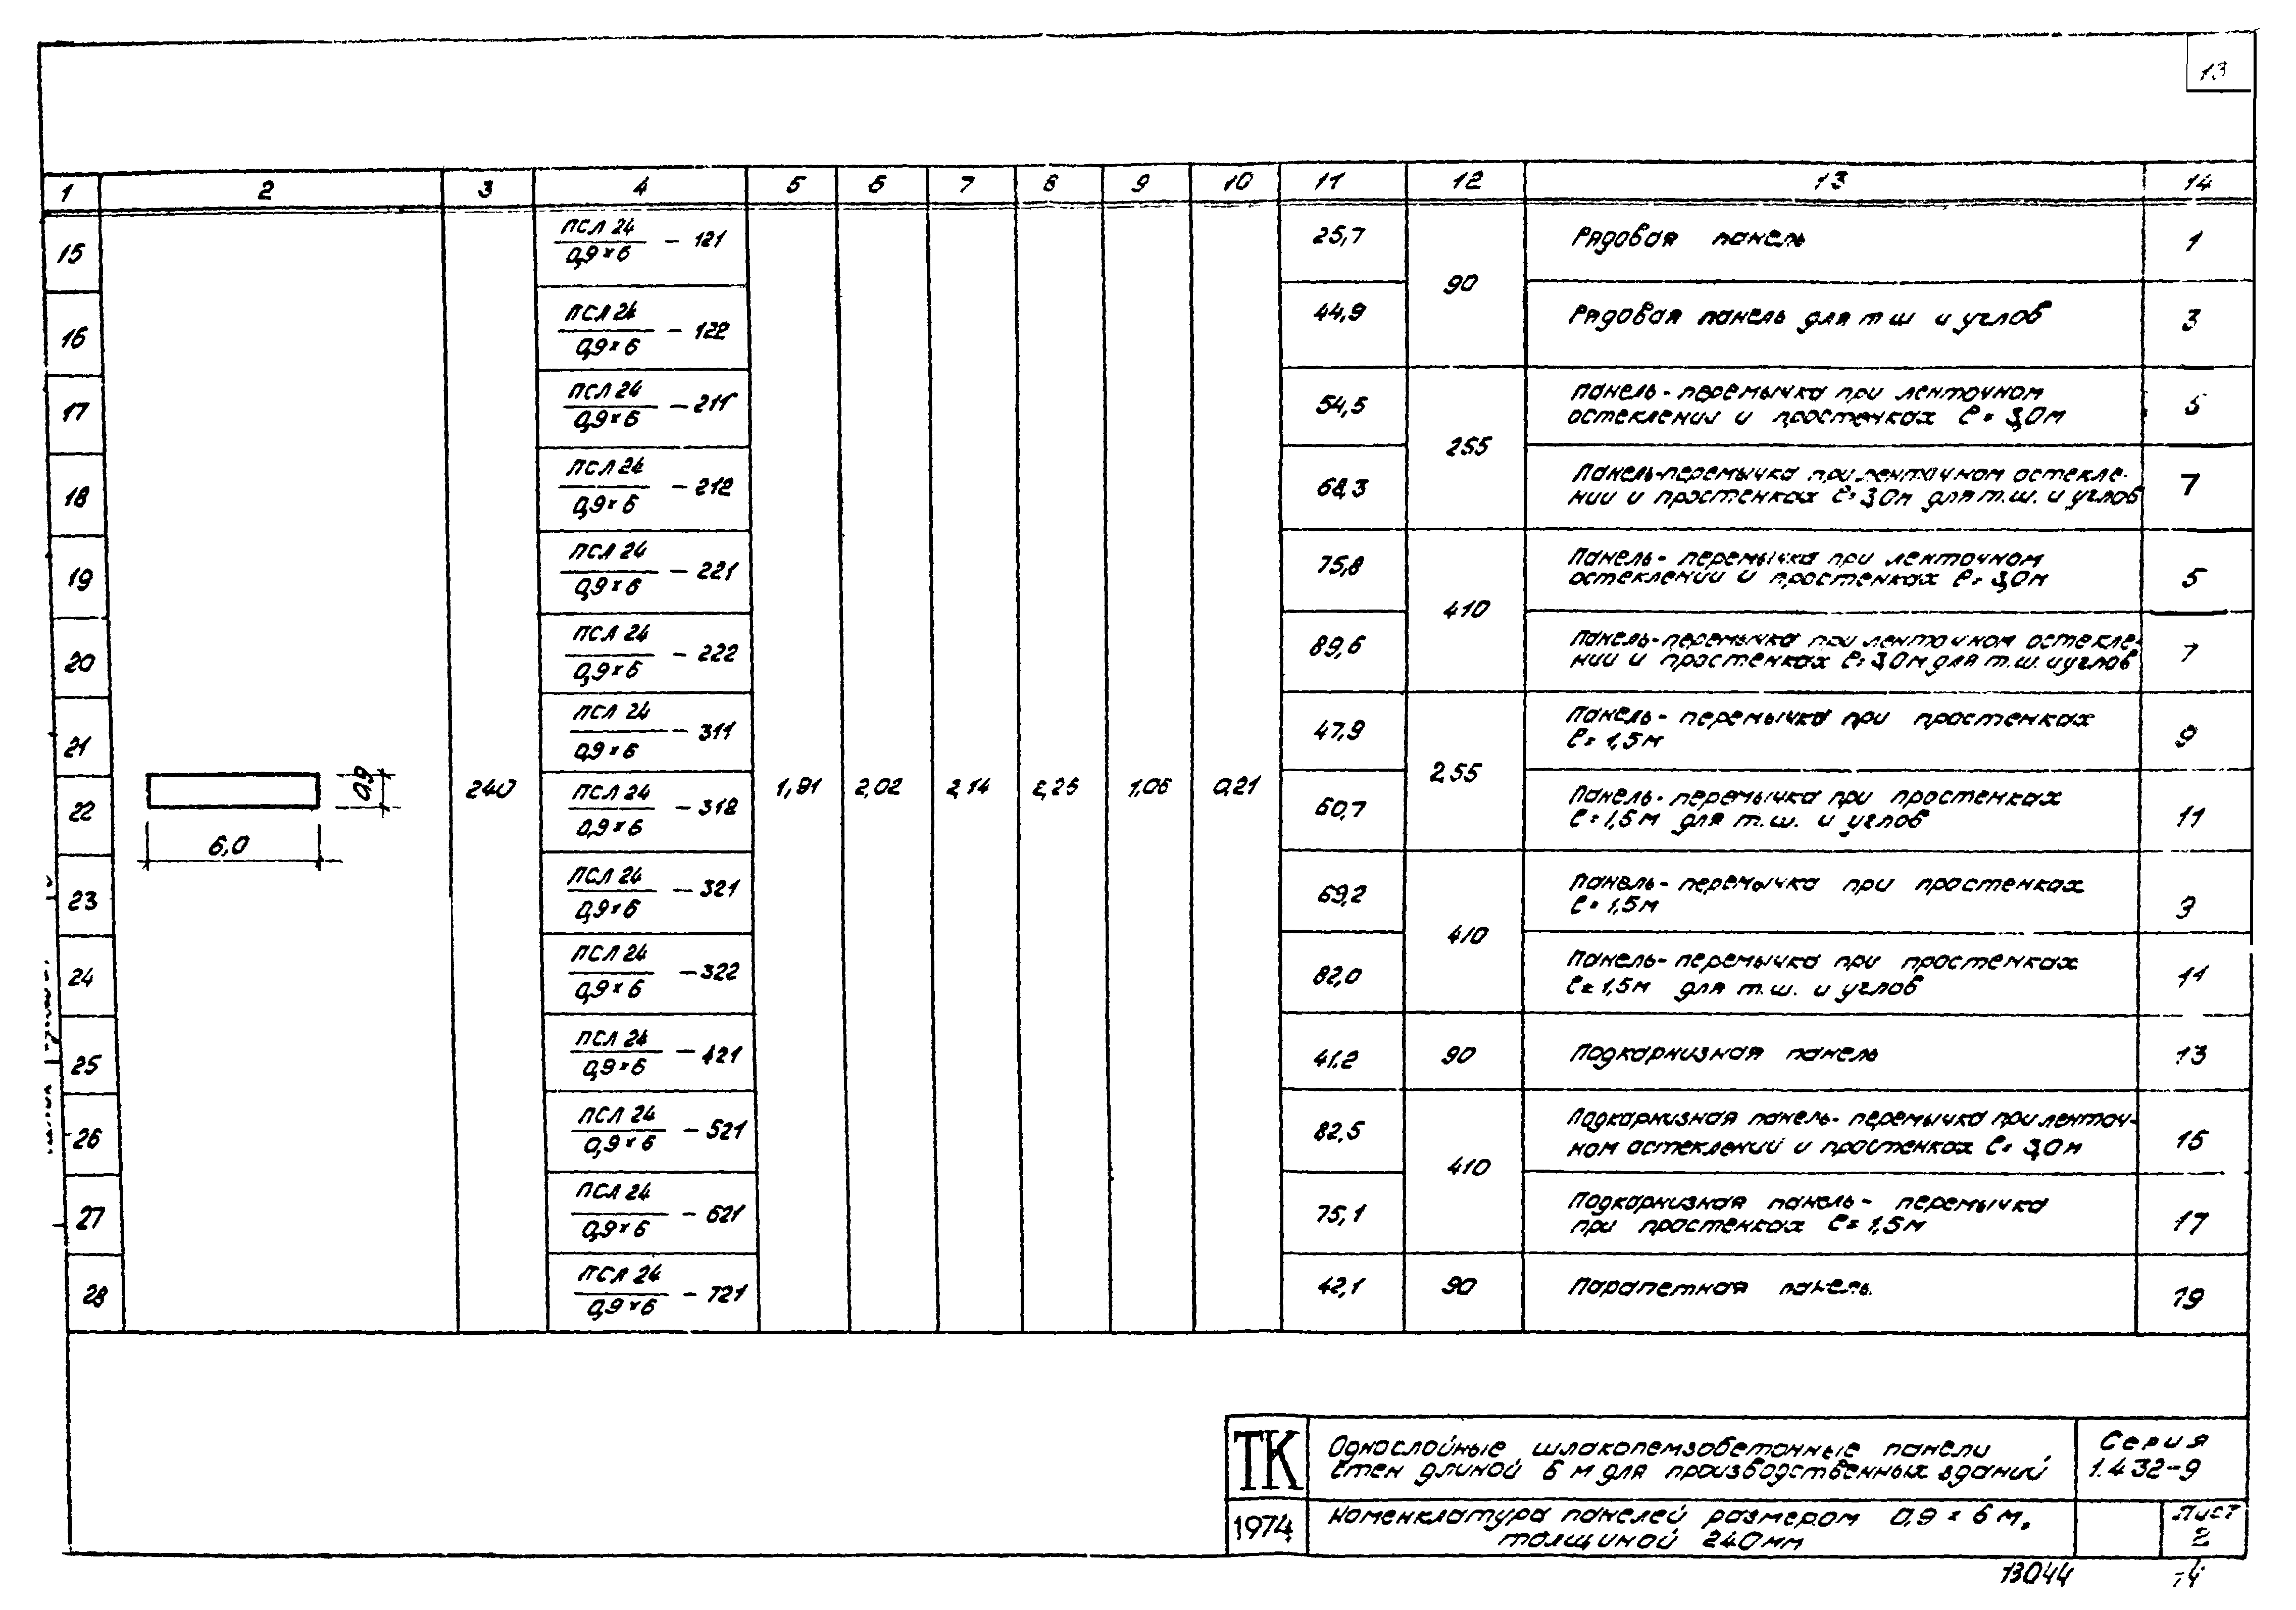 13
1 2 3 4 5 6 7 8 9 10 11 12 13 14
15 ПСЛ 24 / 0,9×6 - 121 25,7 90 Рядовая панель 1
16 ПСЛ 24 / 0,9×6 - 122 44,9 Рядовая панель для т ш и углов 3
17 ПСЛ 24 / 0,9×6 - 211 54,5 255 Панель-перемычка при ленточном
остеклении и простенках ℓ=3,0м 5
18 ПСЛ 24 / 0,9×6 - 212 68,3 Панель-перемычка при ленточном остекле-
нии и простенках ℓ=3,0м для т.ш. и углов 7
19 ПСЛ 24 / 0,9×6 - 221 75,8 410 Панель-перемычка при ленточном
остеклении и простенках ℓ=3,0м 5
20 ПСЛ 24 / 0,9×6 - 222 89,6 Панель-перемычка при ленточном остекле-
нии и простенках ℓ=3,0м для т.ш. и углов 7
21 ПСЛ 24 / 0,9×6 - 311 47,9 255 Панель-перемычка при простенках
ℓ=1,5м 9
0,9
6,0
240 1,91 2,02 2,14 2,25 1,06 0,21
22 ПСЛ 24 / 0,9×6 - 312 60,7 Панель-перемычка при простенках
ℓ=1,5м для т.ш. и углов 11
23 ПСЛ 24 / 0,9×6 - 321 69,2 410 Панель-перемычка при простенках
ℓ=1,5м 9
24 ПСЛ 24 / 0,9×6 - 322 82,0 Панель-перемычка при простенках
ℓ=1,5м для т.ш. и углов 11
25 ПСЛ 24 / 0,9×6 - 421 41,2 90 Подкарнизная панель 13
26 ПСЛ 24 / 0,9×6 - 521 82,5 410 Подкарнизная панель-перемычка при ленточ-
ном остеклении и простенках ℓ=3,0м 15
27 ПСЛ 24 / 0,9×6 - 621 75,1 Подкарнизная панель-перемычка
при простенках ℓ=1,5м 17
28 ПСЛ 24 / 0,9×6 - 721 42,1 90 Парапетная панель 19
ТК
Однослойные шлакопемзобетонные панели
стен длиной 6 м для производственных зданий
Серия
1.432-9
1974
Номенклатура панелей размером 0,9×6 м,
толщиной 240мм
Лист
2
13044 14